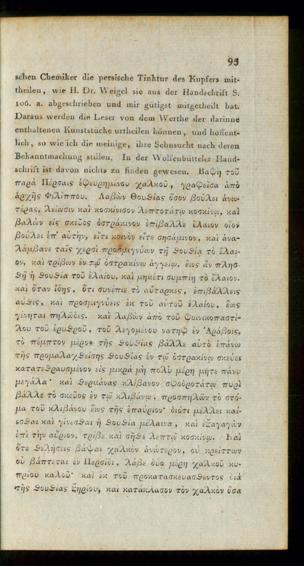 95
schen Chemiker die persische Tinktur des Kupfers mit-
theilen, wie H. Dr. Weigel sie aus der Handschrift S.
106. a. abgeschrieben und mir gütigst mitgetheilt hat.
Daraus werden die Leser von dem Werthe der darinne
enthaltenen Kunststücke urtheilen können, und hoffent-
lich, so wie ich die meinige, ihre Sehnsucht nach deren
Bekanntmachung stillen. In der Wolfenbüttelschen Hand-
schrift ist davon nichts zu finden gewesen. Βαφὴ τοῦ
παρὰ Πέρσαις ἐφευρημένου χαλκοῦ, γραφεῖσα ἀπὸ
ἀρχῆς Φιλίππου. Λαβὼν θουθίας ὅσον βούλει ἀνω-
τέρας, λείωσιν καὶ κοσκίνισον λεπτοτάτῳ κοσκίνῳ, καὶ
βαλὼν εἰς σκεῦος ὀστράκινον ἐπίβαλλε ἔλαιον οἷον
βούλει ἐπ' αὐτὴν, εἴτε κοινὸν εἴτε σησάμινον, καὶ ἀνα-
λάμβανε ταῖς χερσὶ προσμιγνύων τῇ θουθίᾳ τὸ ἔλαι-
ον, καὶ τρίβων ἐν τῷ ὀστρακίνῳ ἀγγείῳ, ἕως ἂν πλησ-
θῇ ἡ θουθία τοῦ ἐλαίου, καὶ μηκέτι συμπίῃ τὸ ἔλαιον.
καὶ ὅταν ἴδῃς, ὅτι συνέπιε τὸ αὔταρκες, ἐπιβάλλεις
αὖθις, καὶ προσμιγνύεις ἐκ τοῦ αὐτοῦ ἐλαίου, ἕως
γίνηται πηλώδες. καὶ λαβὼν ἀπὸ τοῦ φοινικοπαστί-
λου τοῦ ἐρυθροῦ, τοῦ λεγομένου νατὴφ ἐν Ἀράβοις,
τὸ πέμπτον μέρος τῆς θουθίας βάλλε αὐτὸ ἐπάνω
τῆς προμαλαχθείσης θουθίας ἐν τῷ ὀστρακίνῳ σκεύει
κατατεθραυσμένον εἰς μικρὰ μὴ πολὺ μέρη μήτε πάνυ
μεγάλα· καὶ θερμάνας κλίβανον σφοδροτάτῳ πυρὶ
βάλλε τὸ σκεῦος ἐν τῷ κλιβάνῳ, προσπηλῶν τὸ στό-
μα τοῦ κλιβάνου ἕως τῆς ἐπαύριον· διότι μέλλει καί-
εσθαι καὶ γίνεσθαι ἡ θουθία μέλαινα, καὶ ἐξαγαγὼν
ἐπὶ τὴν αὔριον, τρίβε καὶ σῆθε λεπτῷ κοσκίνῳ. Καὶ
ὅτε θελήσεις βάψαι χαλκὸν ἀνώτερον, οὗ κρείττων
οὐ βάπτεται ἐν Περσίδι, λάβε δύο μέρη χαλκοῦ κυ-
πρίου καλοῦ· καὶ ἐκ τοῦ προκατασκευασθέντος διὰ
τῆς θουθίας ξηρίου, καὶ κατάκλασον τὸν χαλκὸν ὅσα